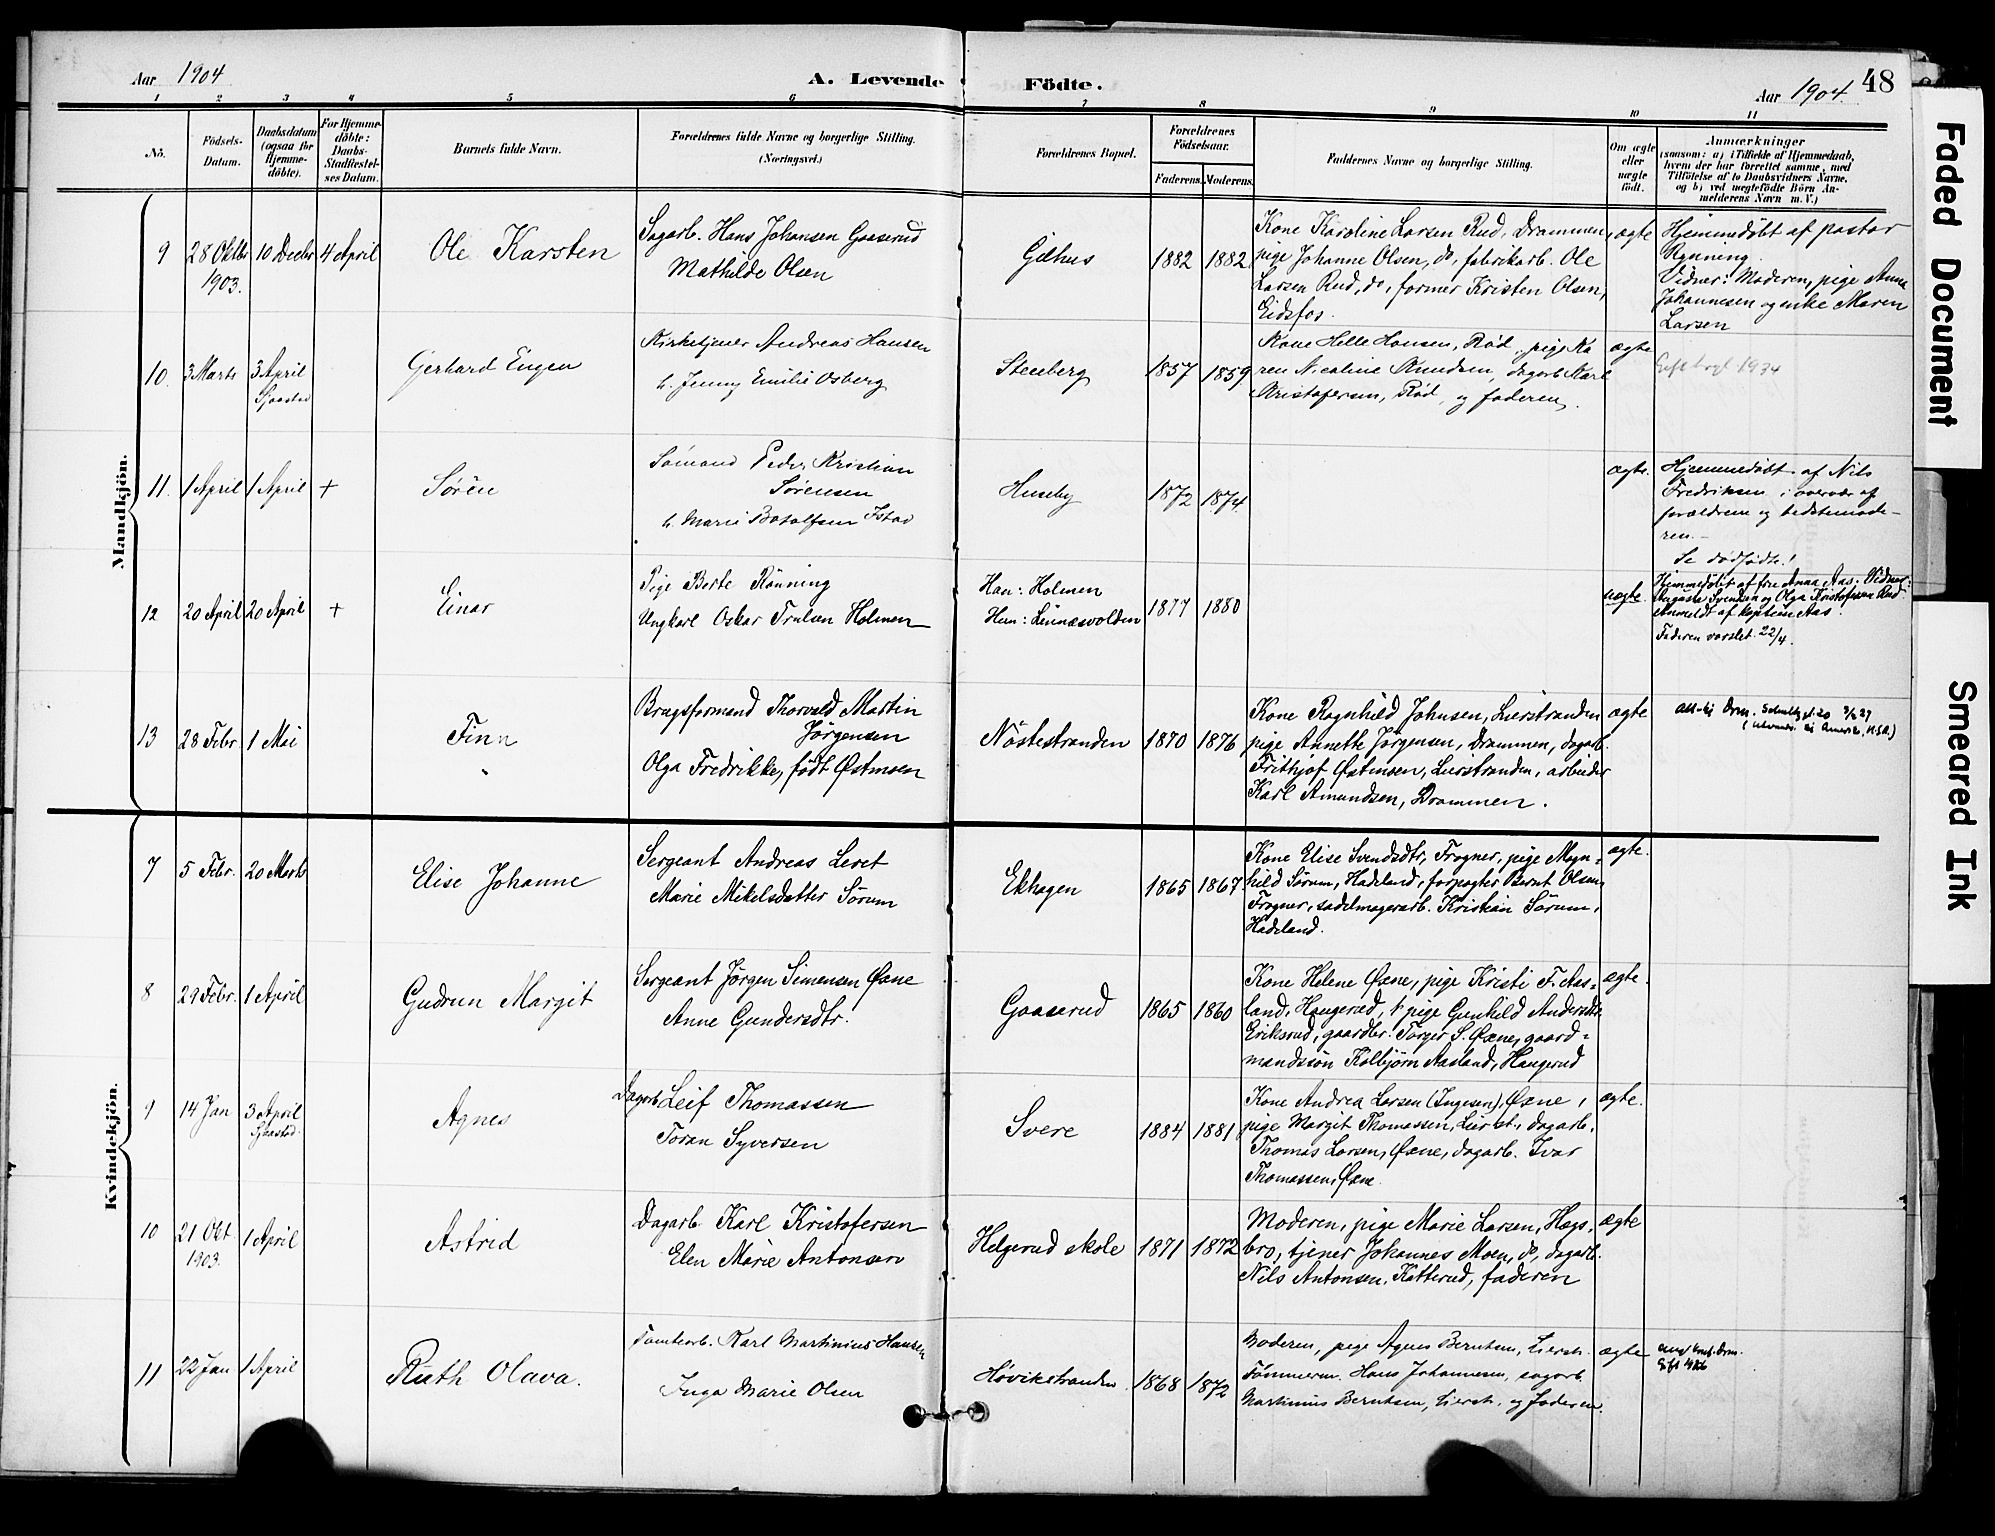 Aar 1904
A. Levende Födte.
Aar 1904.
48
1 2 3 4 5 6 7 8 9 10 11
No.
Födsels-Datum.
Daabsdatum (ogsaa for Hjemme-döbte).
For Hjemme-döbte: Daabs-Stadfæstel-ses Datum.
Barnets fulde Navn.
Forældrenes fulde Navne og borgerlige Stilling. (Næringsvei.)
Forældrenes Bopæl.
Forældrenes Födselsaar.
Faderens. Moderens.
Faddernes Navne og borgerlige Stilling.
Om ægte eller uægte födt.
Anmærkninger
(saasom: a) i Tilfælde af Hjemmedaab,
hvem der har forrettet samme, med
Tilföielse af to Daabsvidners Navne,
og b) ved uægtefödte Börn An-
melderens Navn m. V.)
Mandkjön.
9
28 Oktbr 1903.
10 Decbr
4 April
Ole Karsten
Sagarb. Hans Johansen Gaaserud
Mathilde Olsen
Gilhus
1882
1882
Kone Karoline Larsen Rud, Drammen,
pige Johanne Olsen, do, fabrikarb. Ole
Larsen Rud, do, former Kristen Olsen,
Eidsfos.
ægte
Hjemmedøbt af pastor
Rynning.
Vidner: Moderen, pige Anna
Johannesen og enke Maren
Larsen
10.
3 Marts
3 April
Sjaastad
Gerhard Eugen
Kirketjener Andreas Hansen
h. Jenny Emilie Osberg
Stenberg
1857
1859
Kone Helle Hansen, Rød, pige Ka
ren Nicoline Knudsen, dagarb Karl
Kristofersen, Rød, og faderen.
ægte
1934
11.
1 April
1 April
+
Sørén
Sømand Peder Kristian
Sørensen
h. Marie
Huseby
1872
1874
ægte.
Hjemmedøbt af Nils
Fredriksen i overvær af
forældrene og bedstemode-
ren.-
Se dødfødte!
12
20 April
20 April
+
Einar
Pige Berte Rönning
Ungkarl Oskar Trulsen Holmen
Han: Holmen
Hun: Linnæsvolden
1877
1880
uægte.
Hjemmedöbt af fru Anna Aas. Vidner:
Augusta Svendsen og Olga Kristofersen Rud.
Anmeldt af kaptein Aas.
Faderen varslet 22/4.
13
28 Febr
1 Mai
Finn
Brugsformand Thorvald Martin
Jørgensen
Olga Fredrikke, født Østensen
Nöstestranden
1870
1876
Kone Ragnhild Johnsen, Lierstranden
pige Annette Jørgensen, Drammen, dagarb.
Frithjof Østensen, Lierstranden, arbeider
Karl Amundsen, Drammen.
ægte
Kvindekjön.
7
5 Febr.
20 Marts
Elise Johanne
Sergeant Andreas Leret
Marie Mikelsdatter Sørum
Ekhagen
1865
1867
Kone Elise Svendsdtr, Frogner, pige Magn-
hild Sørum, Hadeland, forpagter Bernt Olsen,
Frogner, sadelmagerarb. Kristian Sørum,
Hadeland.
ægte.
8
29 Febr.
1 April
Gudrun Margit
Sergeant Jørgen Simensen Øæne
Anne Gundersdtr.
Gaaserud
1865
1860
Kone Helene Øæne, pige Kristi F. Aas-
land, Haugerud, pige Gunhild Andersdtr
Eriksrud, gaardbr. Torger S. Øæne, gaard-
mandssøn Kolbjørn Aasland, Haugerud
ægte.
9
14 Jan
3 April
Sjaastad.
Agnes
Dagarb Leif Thomassen
Toran Syversen
Svere
1884
1881
Kone Andrea Larsen (Ingesen), Øæne,
pige Margit Thomassen, Lierst., dagarb.
Thomas Larsen, Øæne, dagarb. Ivar
Thomassen, Øæne.
ægte.
10
21 Okt 1903.
1 April
Astrid
Dagarb Karl Kristofersen
Elen Marie Antonsen
Helgerud skole
1871
1872
Moderen, pige Marie Larsen, Hegs-
bro, tjener Johannes Moen, do, dagarb.
Nils Antonsen, Katterud, faderen
ægte
11
22 Jan
1 April
Ruth Olava.
Tomtearb. Karl Martinius Hansen
Inga Marie Olsen
Høvikstranden
1868
1872
Moderen, pige Agnes Berntsen, Lierstr.
Tömmerm. Hans Johannesen, sagarb
Martinius Berntsen, Lierstr. og faderen.
ægte
Faded Document
Smeared Ink